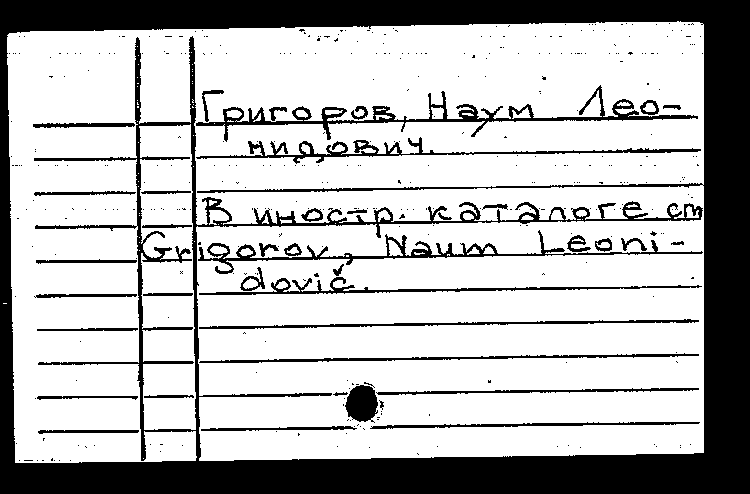 Григоров, Наум Лео-
нидович.
В иностр. каталоге см
Grigorov, Naum Leoni-
dovič.